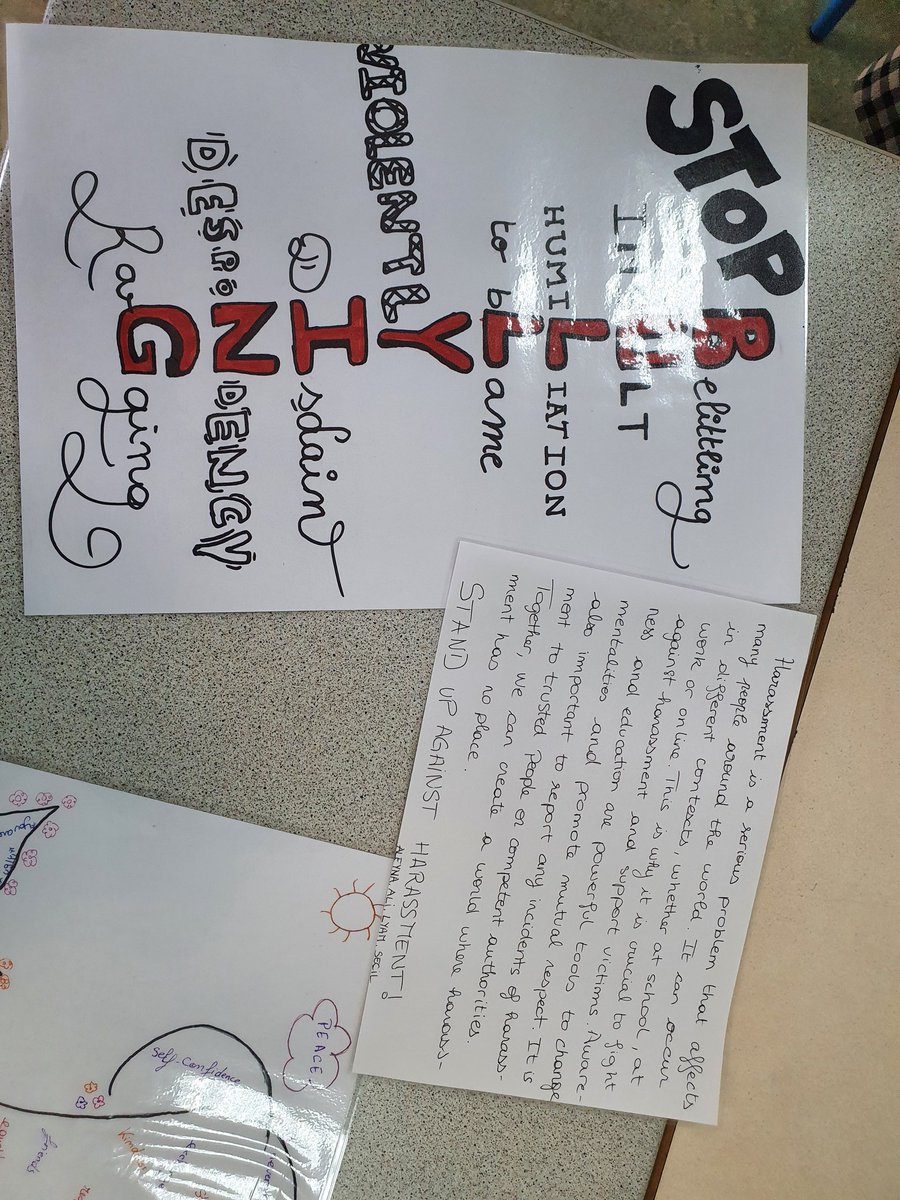 STOP
Belittling
INSULT
HUMILIATION
to bLame
VIOLENTLY
DIsdain
DESPONDENCY
RaGging
Harassment is a serious problem that affects
many people around the world. It can occur
in different contexts, whether at school, at
work or online. This is why it is crucial to fight
against harassment and support victims. Aware-
ness and education are powerful tools to change
mentalities and promote mutual respect. It is
also important to report any incidents of harass-
ment to trusted people or competent authorities.
Together, we can create a world where harass-
ment has no place.
STAND UP AGAINST HARASSMENT!
ALEYNA, ALI, LYAM, SOCIL
PEACE
self-confidence
friends